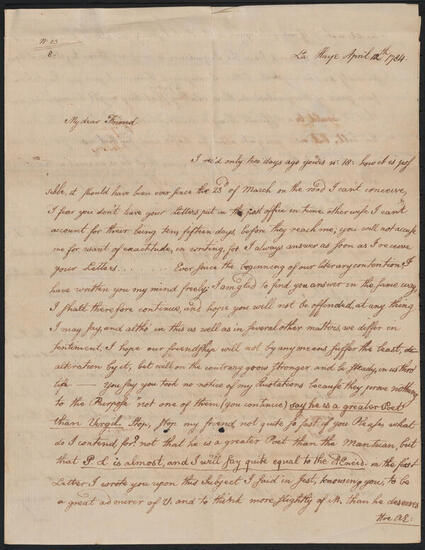 La Haye April 12th 1784.
My dear Friend
I rec'd only two days ago yours n. 18. how it is pos
sible, it should have been ever since the 23d of March on the road I can't conceive,
I fear you don't have your Letters put in the post office in time other wise I can't
account for their being ten fifteen days before they reach me, you will not accuse
me for want of exactitude, in writing, for I always answer as soon as I receive
your Letters....... Ever since the beginning of our literary contention I
have written you my mind freely; I am glad to find you answer in the same way
I shall therefore continue, and hope you will not be offended, at any thing
I may say, and altho' in this as well as in several other matters, we differ in
sentiment. I hope our friendship will not by any means suffer the least,
alteration by it, but will on the contrary grow stronger and be steady, in as
life — you say you took no notice of my Quotations because they prove nothing
to the Purpose "not one of them (you continue) say he is a greater Poet
than Virgil" Stop, stop my friend not quite so fast, if you Please what
do I contend for? not that he is a greater Poet than the Mantuan, but
that P. L is almost, and I will say quite equal to the AEneid. in the first
Letter I wrote you upon this Subject I said in jest, knowing you to be
a great admirer of V. and to think more slightly of M. than he deserves